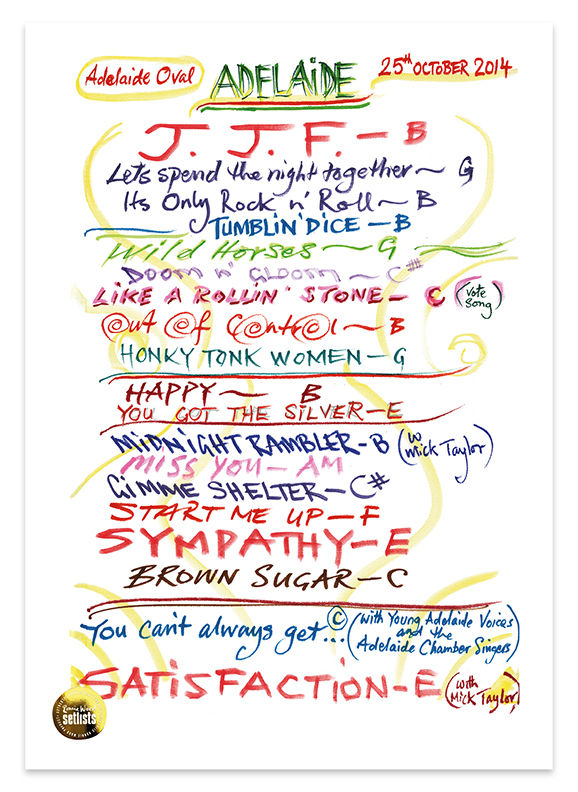 Adelaide Oval
ADELAiDE
25th OCTOBER 2014
J. J. F. – B
Lets spend the night together ~ G
Its Only Rock n' Roll ~ B
TUMBLIN' DICE – B
Wild Horses ~ G
DOOM N' GLOOM ~ C#
LiKE A ROLLiN' STONE – C (Vote Song)
Out Of Control ~ B
HONKY TONK WOMEN – G
HAPPY ~ B
YOU GOT THE SiLVER – E
MiDNiGHT RAMBLER – B (w Mick Taylor)
MiSS YOU – AM
GiMME SHELTER – C#
START ME UP – F
SYMPATHY – E
BROWN SUGAR – C
You can't always get... © (with Young Adelaide Voices and the Adelaide Chamber Singers)
SATiSFACTiON – E (with Mick Taylor)
Ronnie Wood
setlists